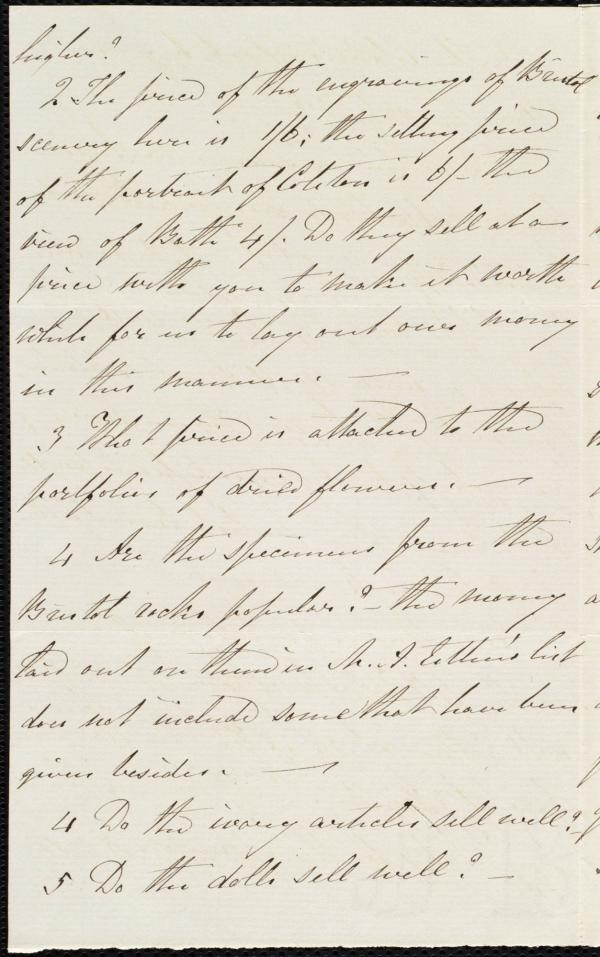 higher?
2 The price of the engravings of Bristol
scenery here is 1/6; the selling price
of the portrait of Colston is 6/- the
view of Bath 4/. Do they sell at a
price with you to make it worth
while for us to lay out our money
in this manner. —
3 What price is attached to the
portfolios of dried flowers. —
4 Are the specimens from the
Bristol rocks popular? - the money
laid out on them in M. A. Estlin's list
does not include some that have been
given besides. —
4 Do the ivory articles sell well? -
5 Do the dolls sell well? -